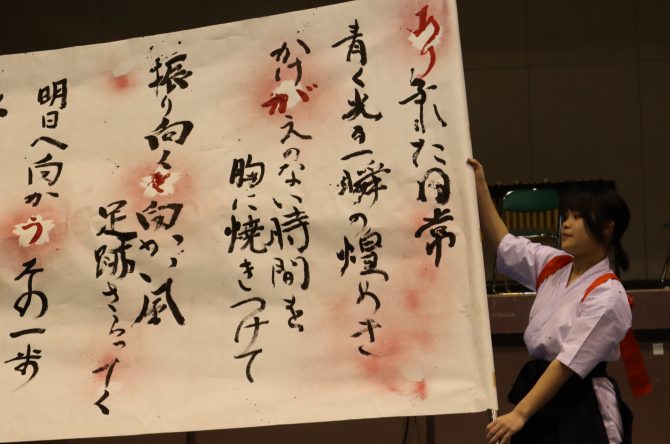 ありふれた日常
青く光る一瞬の煌めき
かけがえのない時間を
胸に焼きつけて
振り向くと向かい風
足跡さらってく
明日へ向かう
その一歩